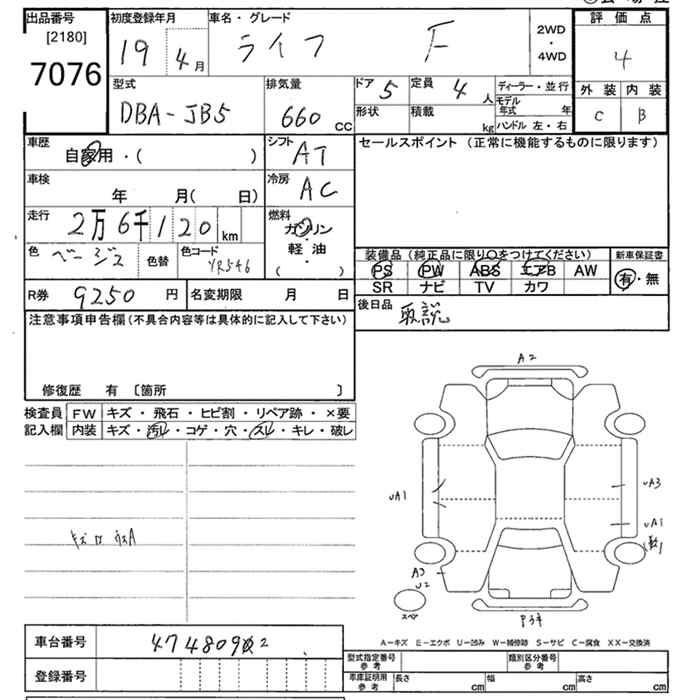 出品番号
[2180]
7076
初度登録年月
19 4月
車名・グレード
ライフ F
2WD
・
4WD
評価点
4
外装 内装
C B
型式
DBA-JB5
排気量
660 CC
ドア 5
定員 4 人
形状
積載 kg
ディーラー・並行
モデル年式 年
ハンドル 左・右
車歴
自家用・( )
シフト
AT
セールスポイント (正常に機能するものに限ります)
車検
年 月( 日)
冷房
AC
走行
2万6千120 km
燃料
ガソリン
・
軽油
・
( )
色
ベージュ
色替
色コード
YR546
装備品 (純正品に限り○をつけてください)
PS PW ABS エアB AW
SR ナビ TV カワ
新車保証書
有・無
R券 9250 円
名変期限 月 日
後日品
取説
注意事項申告欄(不具合内容等は具体的に記入して下さい)
修復歴 有 〔箇所 〕
検査員 FW キズ・飛石・ヒビ割・リペア跡・×要
記入欄 内装 キズ・汚レ・コゲ・穴・スレ・キレ・破レ
A2
UA1
UA3
UA1
A3
U2
スペア
A-キズ E-エクボ U-凹み W-補修跡 S-サビ C-腐食 XX-交換済
車台番号
登録番号
型式指定番号
参考
類別区分番号
参考
車庫証明用
参考
長さ cm
幅 cm
高さ cm